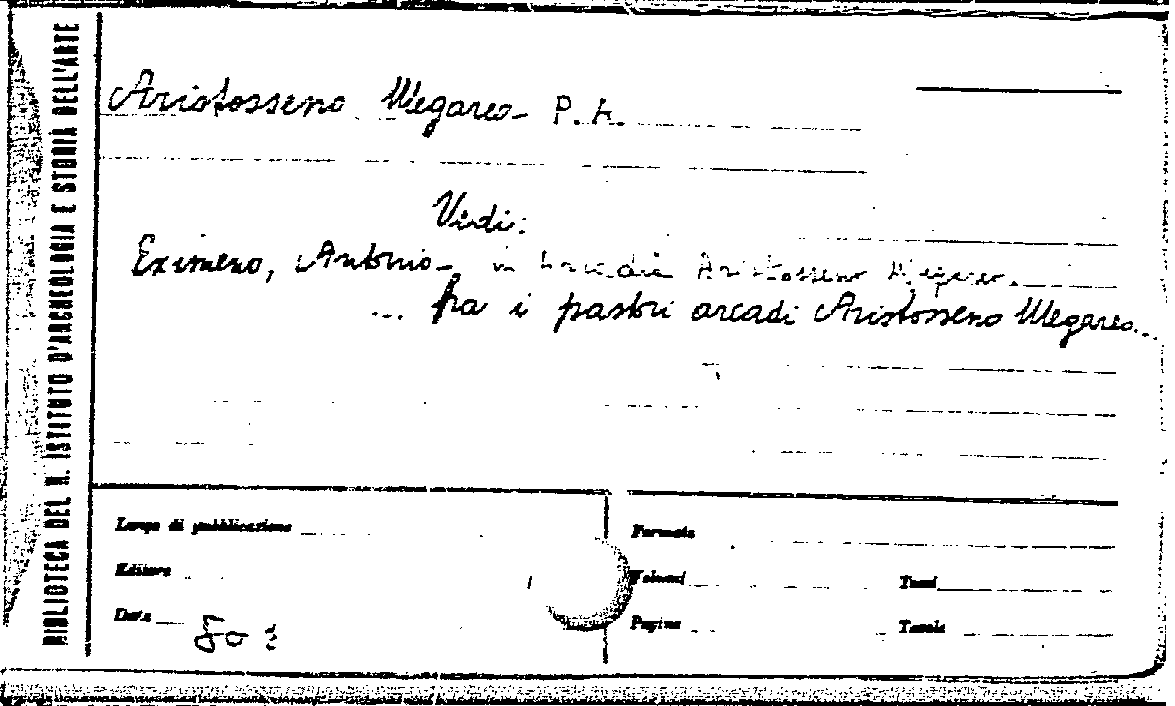 BIBLIOTECA DEL R. ISTITUTO D'ARCHEOLOGIA E STORIA DELL'ARTE
Aristosseno Megareo P. A.
Vedi:
Eximeno, Antonio in Arcadia Aristosseno Megareo.
... fra i pastori arcadi Aristosseno Megareo...
Luogo di pubblicazione
Formato
Editore
Volumi
Tomi
Data
Pagine
Tavole